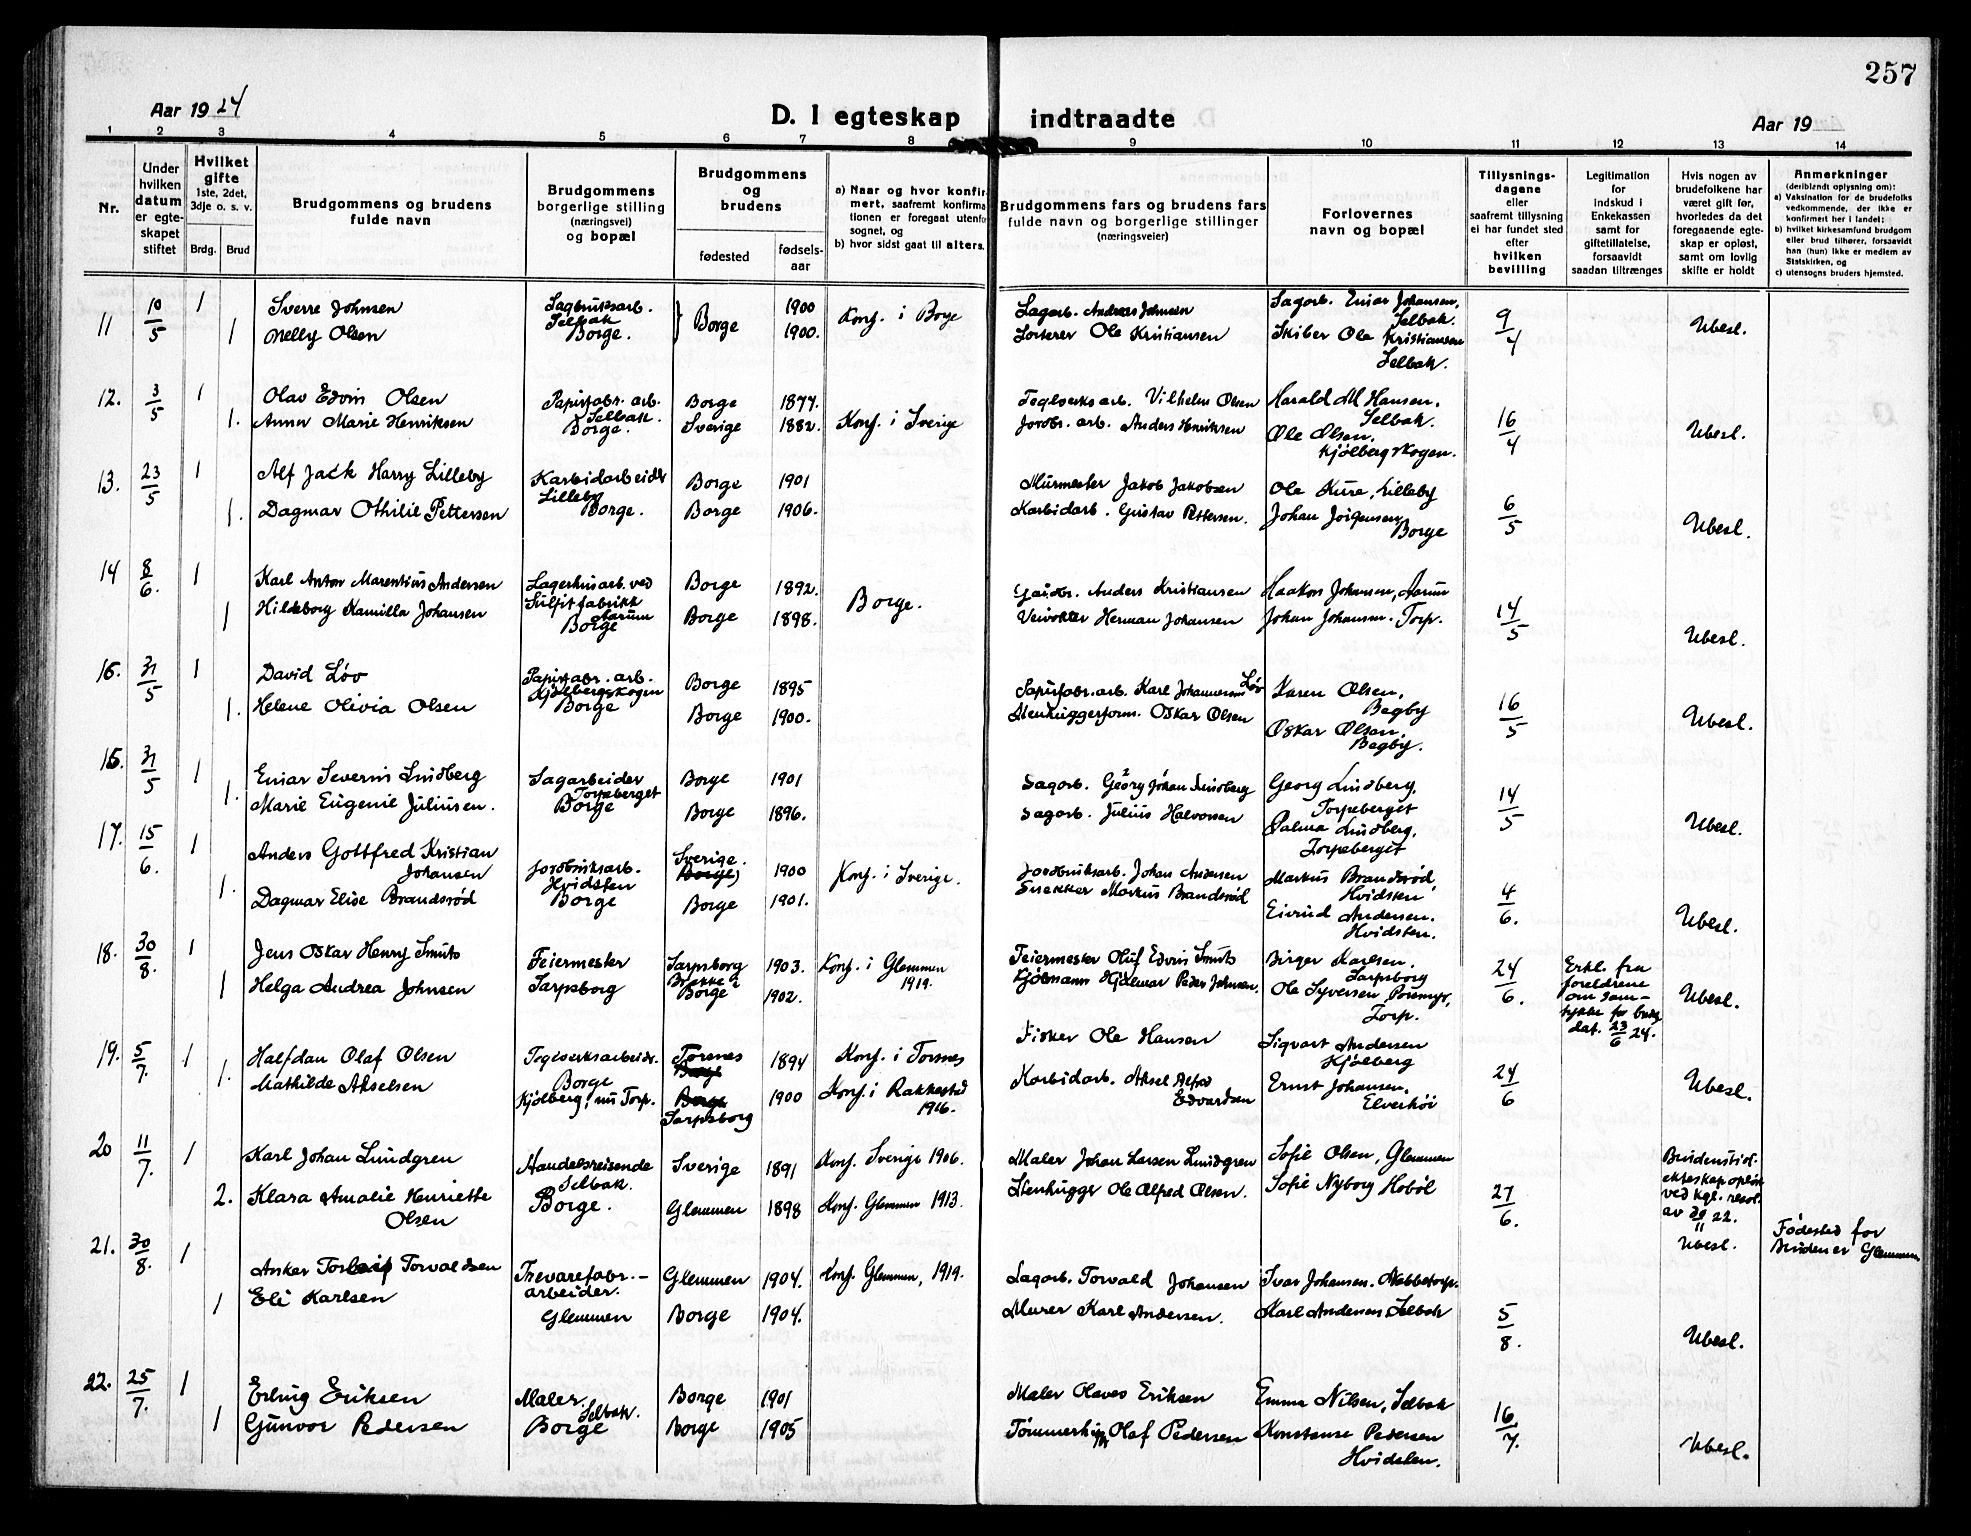 257
Aar 1924
D. I egteskap indtraadte
Aar 19
1 2 3 4 5 6 7 8 9 10 11 12 13 14
Nr.
Under hvilken datum er egte- skapet stiftet
Hvilket gifte 1ste, 2det, 3dje o. s. v.
Brdg. Brud
Brudgommens og brudens fulde navn
Brudgommens borgerlige stilling (næringsvei) og bopæl
Brudgommens og brudens
fødested
fødsels- aar
a) Naar og hvor konfir- mert, saafremt konfirma- tionen er foregaat utenfor sognet, og
b) hvor sidst gaat til alters.
Brudgommens fars og brudens fars fulde navn og borgerlige stillinger (næringsveier)
Forlovernes navn og bopæl
Tillysnings- dagene eller saafremt tillysning ei har fundet sted efter hvilken bevilling
Legitimation for indskud i Enkekassen samt for giftetillatelse, forsaavidt saadan tiltrænges
Hvis nogen av brudefolkene har været gift før, hvorledes da det foregaaende egte- skap er opløst, samt om lovlig skifte er holdt
Anmerkninger (deriblandt oplysning om):
a) Vaksination for de brudefolks vedkommende, der ikke er konfirmert her i landet;
b) hvilket kirkesamfund brudgom eller brud tilhører, forsaavidt han (hun) ikke er medlem av Statskirken, og
c) utensogns bruders hjemsted.
11 10/5 1 Sverre Johnsen Sagbruksarb. Selbak Borge. Borge 1900 Konf. i Borge Lagarb. Andreas Johnsen Sagarb. Einar Johansen, Selbak. 9/4 Ubesl.
1 Nelly Olsen 1900. Sorterer Ole Kristiansen Skiber Ole Kristiansen Selbak.
12. 3/5 1 Olav Edvin Olsen Papirfabr. arb. Selbak. Borge. Borge 1877. Konf. i Sverige Teglverksarb. Vilhelm Olsen Harald M Hansen, Selbak. 16/4 Ubesl.
1. Anna Marie Henriksen Sverige 1882. Jordbr. arb. Anders Henriksen Ole Olsen, Kjølbergskogen.
13. 23/5 1 Alf Jack Harry Lilleby Karbidarbeider Lilleby Borge. Borge 1901 Murmester Jakob Jakobsen Ole Kure, Lilleby 6/5 Ubesl.
1. Dagmar Othilie Pettersen Borge 1906. Karbidarb. Gustav Pettersen. Johan Jørgensen Borge
14 8/6. 1 Karl Anton Marentius Andersen Lagerhusarb. ved Sulfitfabrikk Aarum Borge Borge 1892. Borge. Gaardbr. Anders Kristiansen Haakon Johansen, Aarum 14/5 Ubesl.
1 Hildeborg Kamilla Johansen Borge 1898. Veivokter Herman Johansen Johan Johansen. Torp.
15. 31/5 1 David Løv Papirfabr. arb. Kjølbergskogen Borge Borge 1895 Papirfabr. arb. Karl Johannessen Løv Karen Olsen, Begby 16/5 Ubesl.
1. Helene Olivia Olsen Borge 1900. Stenhuggerform. Oskar Olsen Oskar Olsen, Begby.
16. 31/5 1 Einar Severin Lindberg Sagarbeider Torpeberget Borge Borge 1901 Sagarb. Georg Johan Lindberg Georg Lindberg, Torpeberget 14/5 Ubesl.
1. Marie Eugenie Juliusen. Borge 1896. Sagarb. Julius Halvorsen Palma Lindberg, Torpeberget
17. 15/6. 1 Anders Gottfred Kristian Johansen Jordbruksarb. Hvidsten Borge Sverige. Borge 1900 Konf. i Sverige. Jordbruksarb. Johan Andersen Markus Brandsrød, Hvidsten 4/6. Ubesl.
1. Dagmar Elise Brandsrød Borge 1901. Snekker Markus Brandsrød Eivind Andersen. Hvidsten.
18. 30/8. 1 Jens Oskar Henry Smuts Feiermester Sarpsborg Sarpsborg 1903. Konf. i Glemmen 1919. Feiermester Oluf Edvin Smuts Birger Karlsen. Sarpsborg 24/6. Erkl. fra foreldrene om sam- tykke for brudg. dat. 23/6 24. Ubesl.
1 Helga Andrea Johnsen Brekke i Borge 1902. Kjømann Hjalmar Peder Johnsen. Ole Syversen Poremyr, Torp.
19. 5/7. 1 Halfdan Olaf Olsen Teglverksarbeider. Borge Kjølberg, nu Torp. Torsnes Borge 1894 Konf. i Torsnes Fisker Ole Hansen Sigvart Andersen Kjølberg 24/6 Ubesl.
1. Mathilde Akselsen Borge Sarpsborg 1900 Konf. i Rakkestad 1916. Karbidarb. Aksel Alfred Edvardsen Ernst Johansen, Elverhøi
20 11/7. 1 Karl Johan Lundgren Handelsreisende Selbak. Borge. Sverige 1891 Konf. Sverige 1906. Maler Johan Larsen Lundgren Sofie Olsen, Glemmen 27/6. Brudens tidl. ekteskap opløst ved kgl. resol. av 20/11 22. Ubesl. Fødested for Bruden er Glemmen
2. Klara Amalie Henriette Olsen Glemmen 1898 Konf. Glemmen 1913. Stenhugger Ole Alfred Olsen. Sofie Nyborg Hobøl
21. 30/8. 1 Anker Torleif Torvaldsen Trevarefabr.- arbeider. Glemmen Glemmen 1904. Konf. Glemmen, 1919. Lagarb. Torvald Johansen Ivar Johansen. Nabbetorp. 5/8. Ubesl.
1 Eli Karlsen Borge 1904. Murer Karl Andersen. Karl Andersen Selbak
22. 25/7. 1 Erling Eriksen Maler. Selbak. Borge Borge 1901 Maler Olaves Eriksen Emma Nilsen, Selbak 16/7. Ubesl.
1 Gunvor Pedersen Borge 1905 Tømmerhugger Olaf Pedersen Konstanse Pedersen Hvidsten.